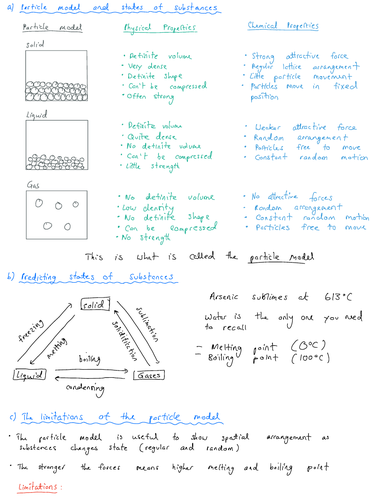 a) Particle model and states of substances
Particle model
Physical Properties
Chemical Properties
Solid
• Definite volume
• Very dense
• Definite shape
• Can't be compressed
• Often strong
• Strong attractive force
• Regular lattice arrangement
• Little particle movement
• Particles move in fixed
position
Liquid
• Definite volume
• Quite dense
• No definite volume
• Can't be compressed
• Little strength
• Weaker attractive force
• Random arrangement
• Particles free to move
• Constant random motion
Gas
• No definite volume
• Low density
• No definite shape
• Can be compressed
• No strength
• No attractive forces
- Random arrangement
• Constant random motion
• Particles free to move
This is what is called the particle model
b) Predicting states of substances
Solid
freezing
melting
sublimation
boiling
Liquid
Gases
condensing
Arsenic sublimes at 613°C
Water is the only one you need
to recall
- Melting point (0°C)
- Boiling point (100°C)
c) The limitations of the particle model
• The particle model is useful to show spatial arrangement as
substances changes state (regular and random)
• The stronger the forces means higher melting and boiling point
Limitations: